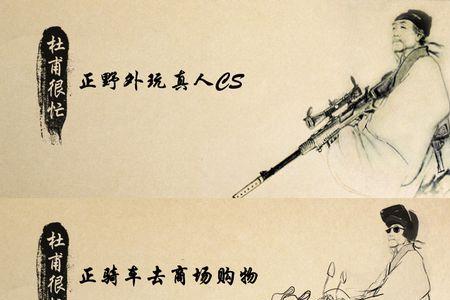 杜甫很忙
正野外玩真人CS
杜甫很忙
正骑车去商场购物